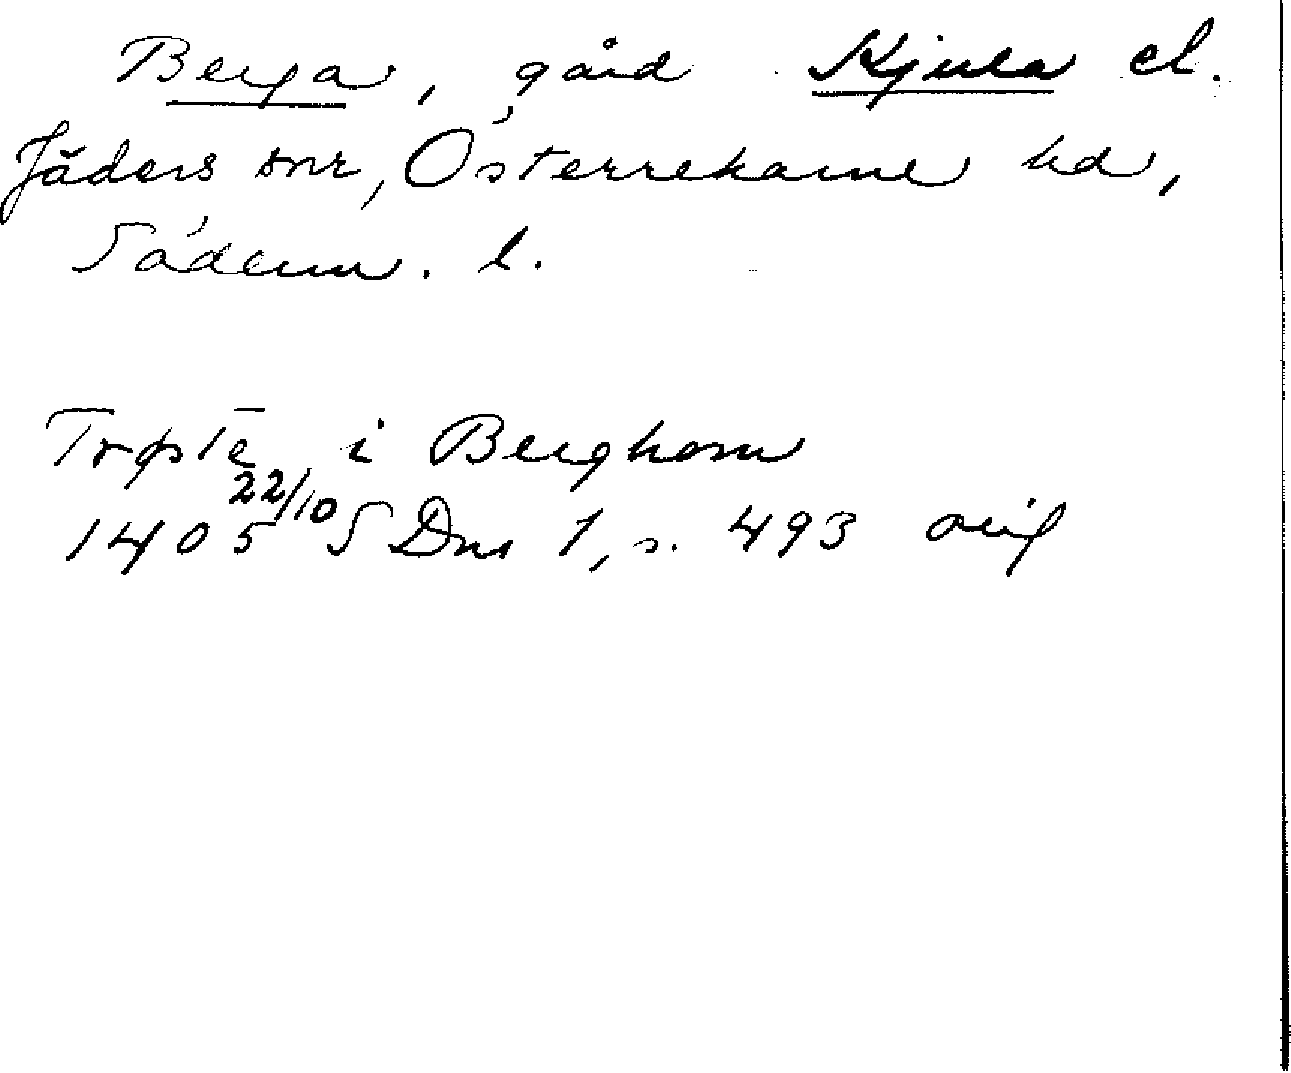 Berga, gård Kjula el.
Jäders snr, Österrekarne hd,
Söderm. l.
Trøstē i Berghom
1405 22/10 SDns 1, s. 493 orig